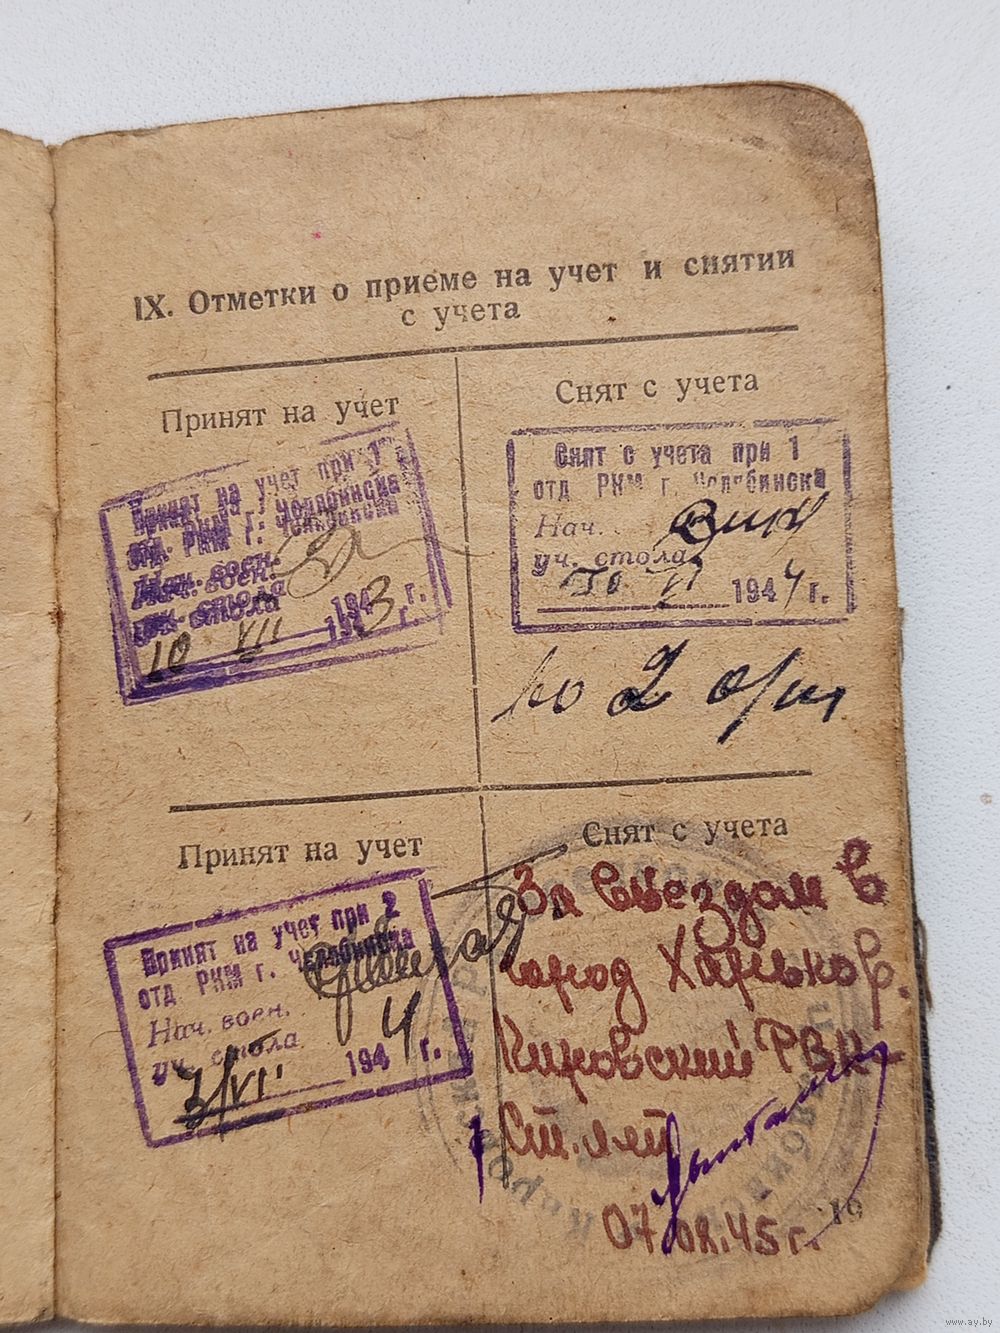 IX. Отметки о приеме на учет и снятии
с учета
Принят на учет
Снят с учета
Принят на учет при 1
отд. РКМ г. Челябинска
Нач. воен.
уч. стола
10 VII 1943 г.
Снят с учета при 1
отд РКМ г. Челябинска
Нач.
уч. стола
30 VI 1944 г.
по 2 отд
Принят на учет
Снят с учета
Принят на учет при 2
отд РКМ г. Челябинска
Нач. воен.
уч. стола
3/VII 1944 г.
За выездом в
город Харьков.
Кировский РВК
Ст. лт
07.08.45 г.
19
www.ay.by